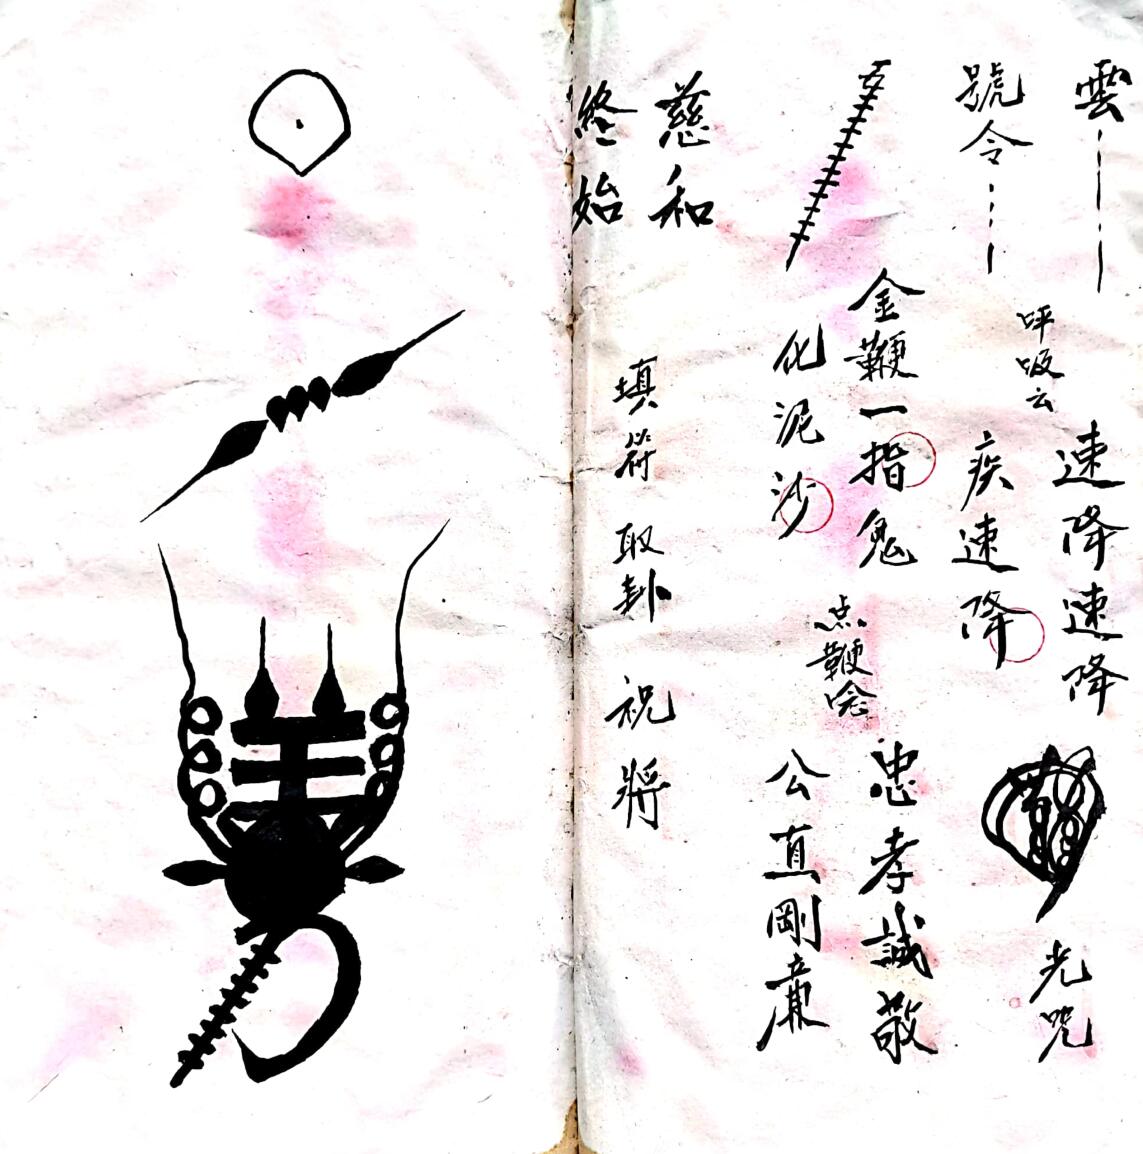 雲
速降速降
呼吸云
光咒
號令
疾速降
金鞭一指鬼
化泥沙
点鞭唸
忠孝誠敬
公直剛廉
慈和
終始
填符 取卦 祝將